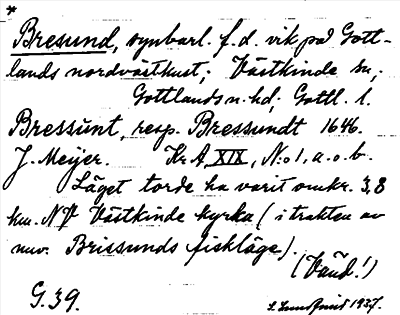 *
Bresund, synbarl. f. d. vik på Gott-
lands nordvästkust; Västkinde sn,
Gottlands n. hd, Gottl. l.
Bressünt, resp. Bressundt 1646.
J. Meijer. Kr A, XIX, N:o 1, a. o. b.
Läget torde ha varit omkr. 3,8
km. NV Västkinde kyrka (i trakten av
nuv. Brissunds fiskläge).
(Vänd!)
G. 39. 1937.